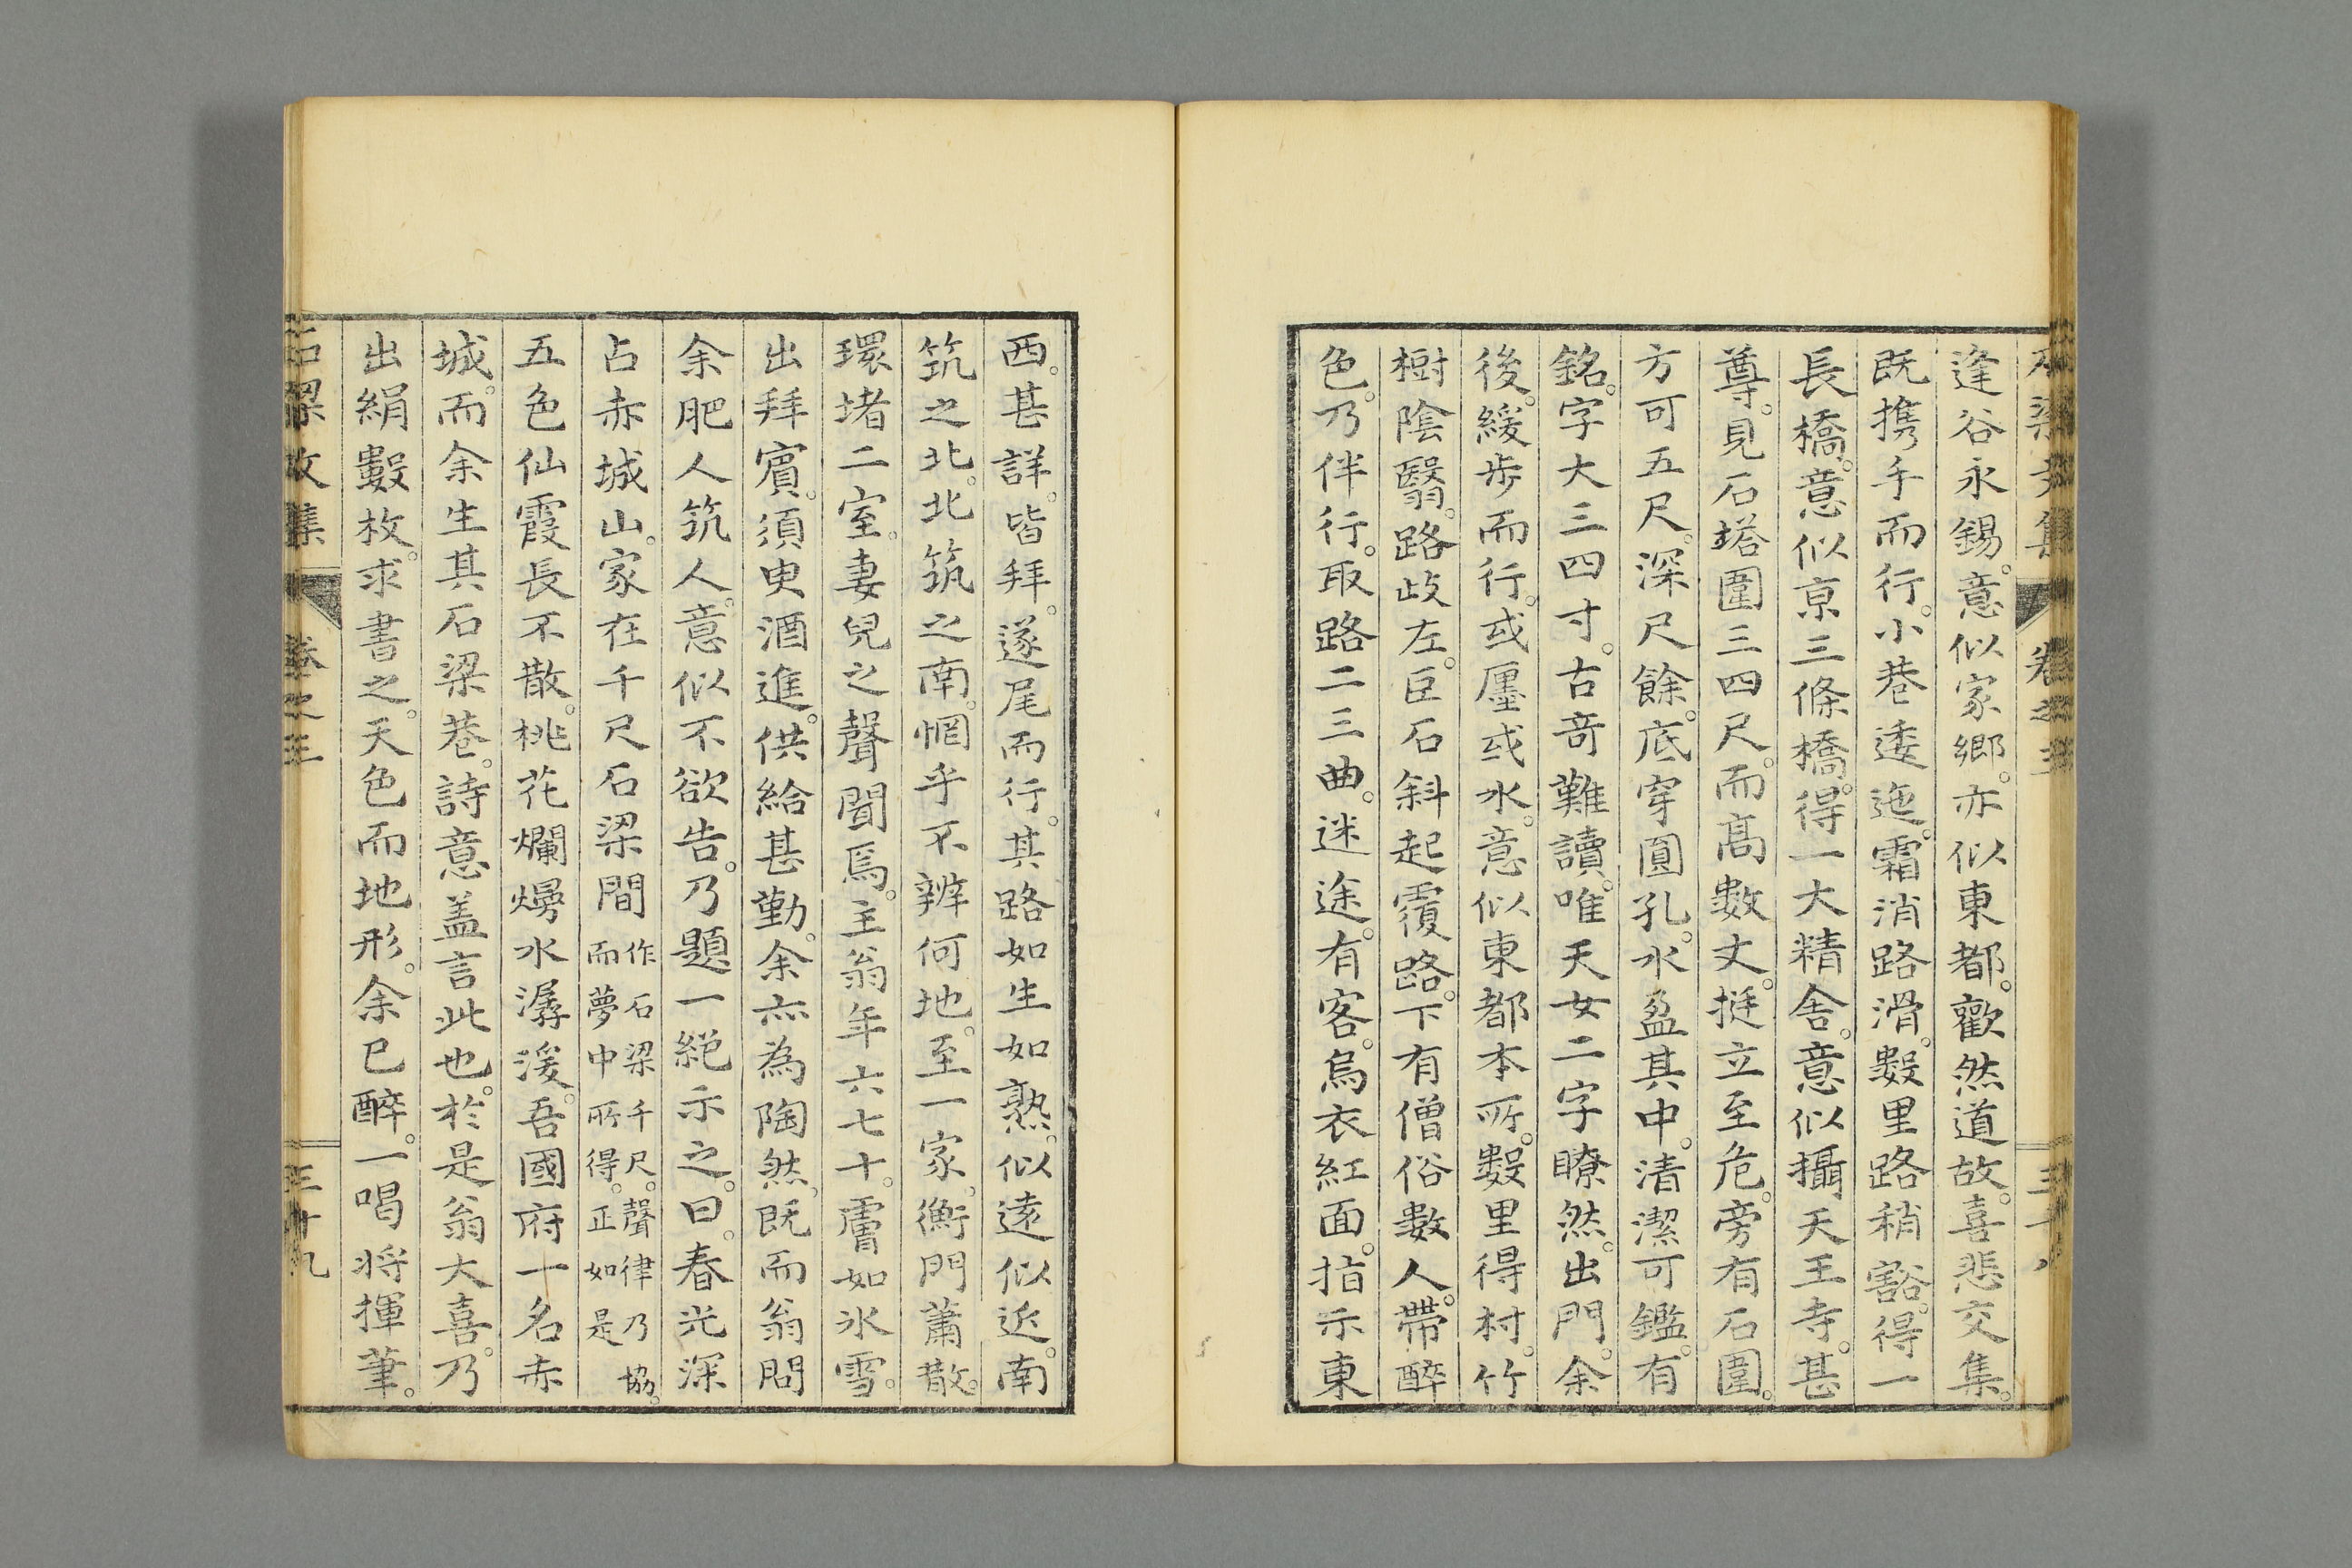 逢谷永錫。意似家鄉。亦似東都。歡然道故。喜悲交集。
既携手而行。小巷逶迤。霜消路滑。數里路稍豁。得一
長橋。意似京三條橋。得一大精舎。意似攝天王寺。甚
尊。見石塔圍三四尺。而髙數丈。挺立至危。旁有石圍。
方可五尺。深尺餘。底穿圓孔。水盈其中。清潔可鑑。有
銘。字大三四寸。古竒難讀。唯天女二字瞭然。出門。余
後。緩歩而行。或㕓或水。意似東都本所。數里得村。竹
樹陰翳。路歧左。巨石斜起覆路。下有僧俗數人。帶醉
色。乃伴行。取路二三曲。迷途。有客。烏衣紅面。指示東
西。甚詳。皆拜。遂尾而行。其路如生如熟。似遠似近。南
筑之北。北筑之南。惘乎不辨何地。至一家。衡門蕭散。
環堵二室。妻兒之聲聞焉。主翁年六七十。膚如氷雪。
出拜賓。須臾酒進。供給甚勤。余亦為陶然。既而翁問
余肥人筑人。意似不欲告。乃題一絕示之。曰。春光深
占赤城山。家在千尺石梁間作石梁千尺。聲律乃協。而夢中所得。正如是
五色仙霞長不散。桃花爛熳水潺湲。吾國府一名赤
城。而余生其石梁巷。詩意盖言此也。於是翁大喜。乃
出絹數枚。求書之。天色而地形。余已醉。一唱将揮筆。
石梁文集 卷之三 三十九